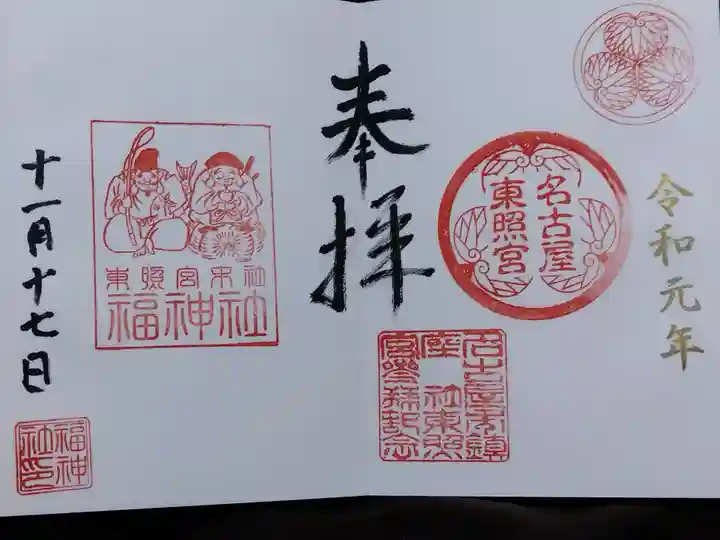 令和元年
名古屋
東照宮
奉拝
名古屋市鎮
座　社東照
宮参拝記念
東照宮末社
福神社
十一月十七日
福神
社印